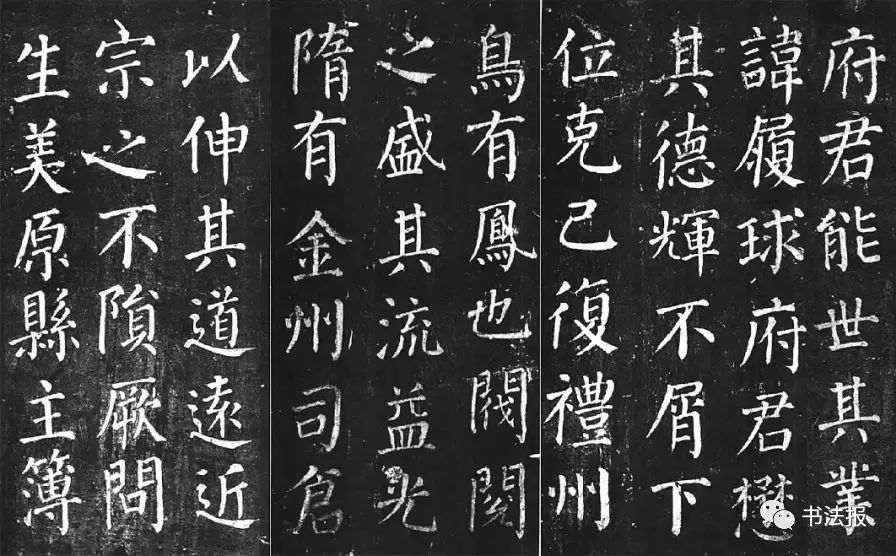 府君能世其業
諱履球府君懋
其德輝不屑下
位克己復禮州
鳥有鳳也閥閱
之盛其流益光
隋有金州司倉
以伸其道遠近
宗之不隕厥問
生美原縣主簿
书法报